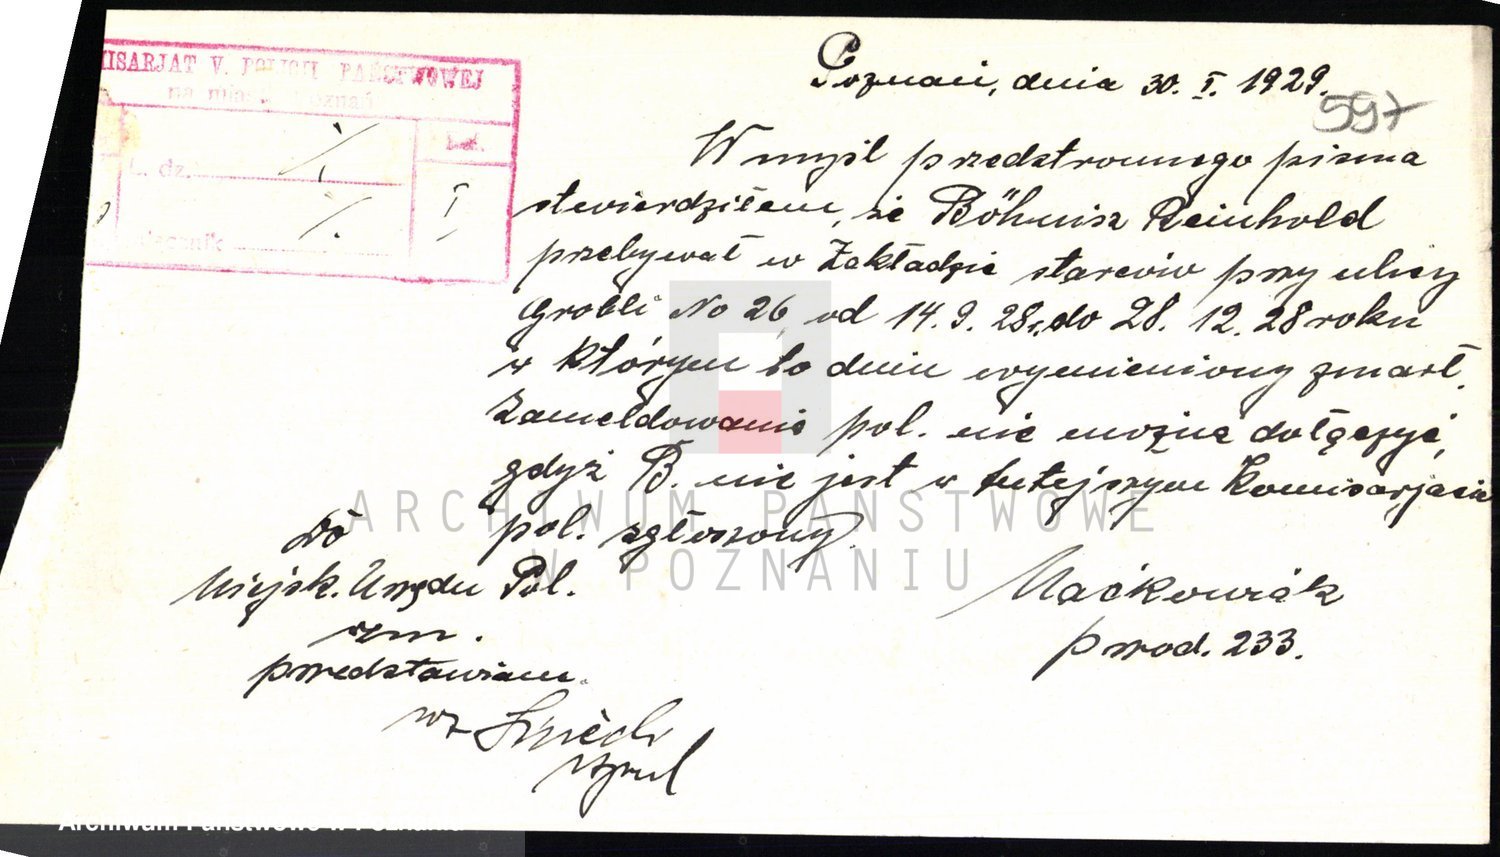 ISARJAT V. POLICJI PAŃSTWOWEJ
na miasto Poznań
L. dz.
I
Poznań, dnia 30. I. 1929.
597
W myśl przedstronnego pisma
stwierdziłem, że Böhnisz Reinhold
przebywał w Zakładzie starców przy ulicy
Grobli No 26 od 14. 9. 28r. do 28. 12. 28 roku
w którym to dniu wymieniony zmarł.
Zameldowania pol. nie można dołączyć,
gdyż B. nie jest w tutejszym Komisarjacie
pol. zgłoszony.
Do
Miejsk. Urzędu Pol.
przedstawiam.
wz
Maćkowiak
przod. 233.
ARCHIWUM PAŃSTWOWE
W POZNANIU
Archiwum Państwowe w Poznaniu